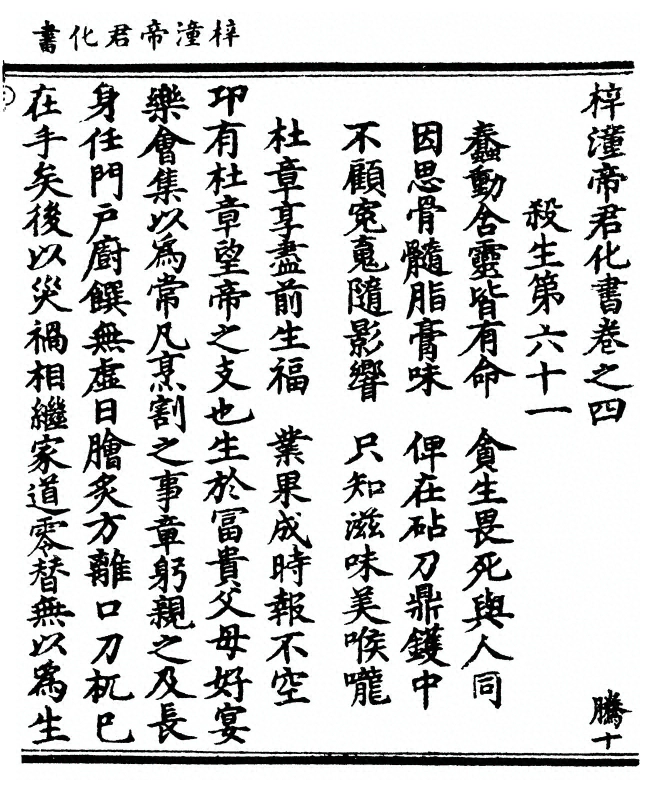 梓潼帝君化書
梓潼帝君化書卷之四
騰十
殺生第六十一
蠢動含靈皆有命　貪生畏死與人同
因思骨髓脂膏味　俾在砧刀鼎鑊中
不顧寃䰟隨影響　只知滋味美喉嚨
杜章享盡前生福　業果成時報不空
卭有杜章望帝之支也生於冨貴父母好宴
樂會集以爲常凡烹割之事章躬親之及長
身任門戸廚饌無虚日膾炙方離口刀杌巳
在手矣後以災禍相繼家道零替無以爲生